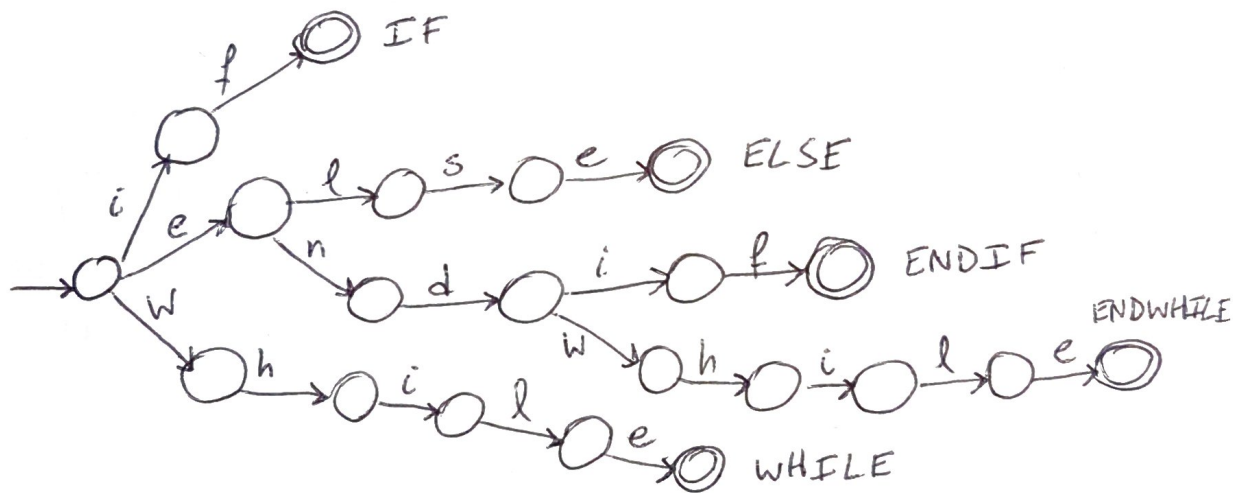 f IF
i
e l s e ELSE
n d i f ENDIF
w h i l e ENDWHILE
W h i l e WHILE